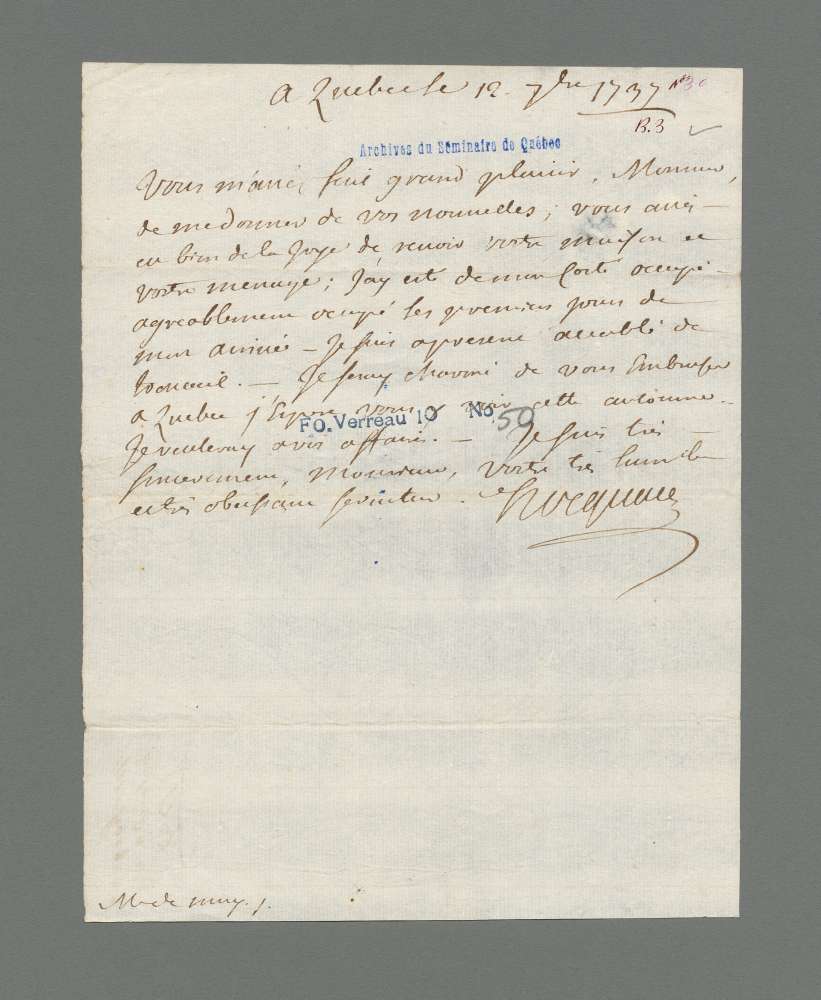 A Quebec le 12. 7bre 1737 No 30
B.3
Archives du Séminaire de Québec
Vous m'avés fait grand plaisir, Monsieur,
de me donner de vos nouvelles; vous avés
eu bien de la joye de revoir vostre maison et
vostre menage; J'ay esté de mon costé occupé
agreablement occupé les premiers jours de
mon arrivée - Je suis apresent accablé de
travail. - Je seray charmé de vous Embrasser
a Quebec j'Espere vous y voir cette automne.
FO. Verreau 10 No 50
affaires. - Je suis très
sincerement, Monsieur, vostre très humble
et très obeissant serviteur. Hocquart
Mr de muy. /.